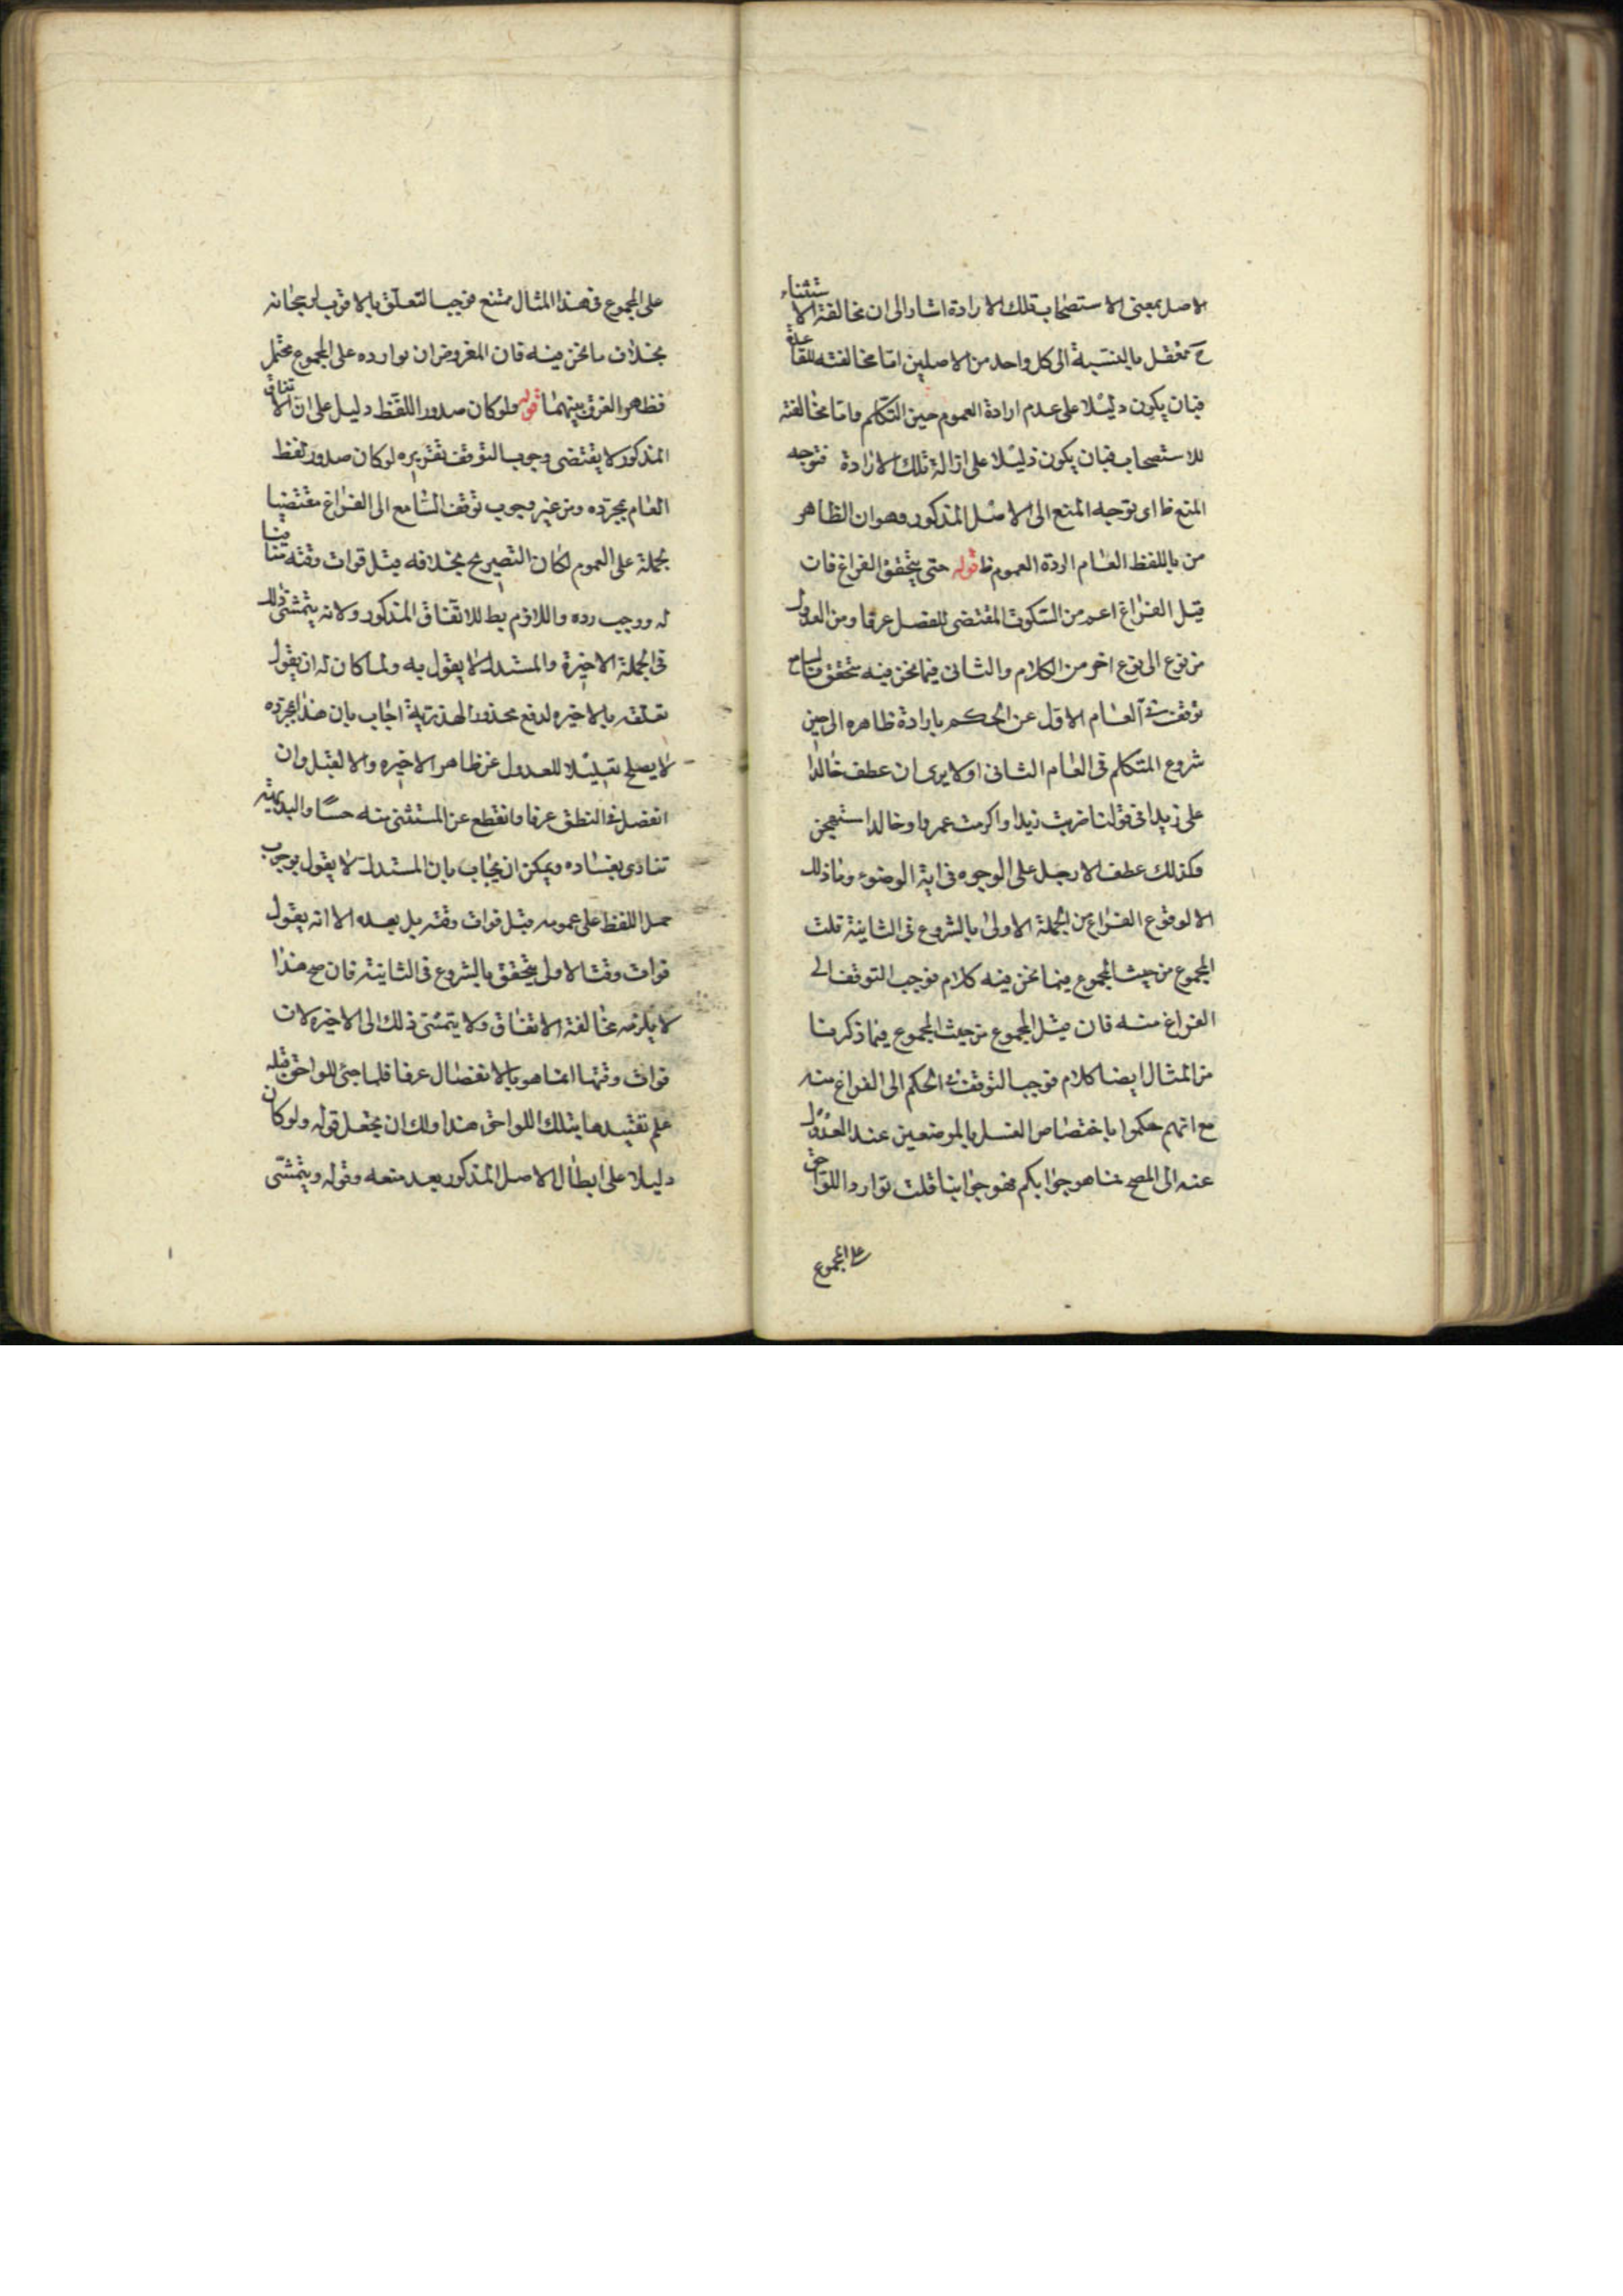 الاصل بمعنى الاستصحاب تلك الارادة اشار الى ان مخالفة الاستثناء
ح تعقل بالنسبة الى كل واحد من الاصلين اما مخالفته للقاعدة
فبان يكون دليلا على عدم ارادة العموم حين التكلم واما مخالفته
للاستصحاب فبان يكون دليلا على ازالة تلك الارادة فتوجه
المنع ظ اى توجه المنع الى الاصل المذكور وهو ان الظاهر
من باللفظ العام اردة العموم ظ قوله حتى يتحقق الفراغ فان
قيل الفراغ اعم من السكوت المقتضى للفصل عرفا ومن العدول
من نوع الى نوع اخر من الكلام والثانى فيما نحن فيه متحقق
توقف فى العام الاول عن الحكم بارادة ظاهره الى حين
شروع المتكلم فى العام الثانى اولا يرى ان عطف خالدا
على زيدا فى قولنا ضربت زيدا واكرمت عمروا وخالدا مستهجن
وكذلك عطف الارجل على الوجوه فى اية الوضوء وماذلك
الا لوقوع الفراغ من الجملة الاولى بالشروع فى الثانية قلت
المجموع من حيث المجموع فيما نحن فيه كلام فوجب التوقف الى
الفراغ منه فان قيل المجموع من حيث المجموع فيما ذكرنا
من المثال ايضا كلام فوجب التوقف فى الحكم الى الفراغ منه
مع انهم حكموا باختصاص الغسل بالموضعين عند العدول
عنه الى المسح فما هو جوابكم فهو جوابنا قلت توارد اللواحق
على المجموع
على المجموع فى هذا المثال ممتنع فوجب التعلق بالاقرب لرجحانه
بخلاف ما نحن فيه فان المفروض ان توارده على المجموع محتمل
فظهر الفرق بينهما قوله ولو كان صدور اللفظ دليل على ان الاتفاق
المذكور لا يقتضى وجوب التوقف تقريره لو كان صدور لفظ
العام بمجرده ومن غير وجوب توقف السامع الى الفراغ مقتضيا
لحمله على العموم لكان التصريح بخلافه قبل فوات وقته منافيا
له ووجب رده واللازم بط للاتفاق المذكور ولانه يتمشى ذلك
فى الجملة الاخيرة والمستدل لا يقول به ولما كان له ان يقول
تعلقه بالاخيره لدفع محذور الهذرية اجاب بان هذا بمجرده
لا يصلح تعليلا للعدول عن ظاهر الاخيره والا لقبل وان
انفصل فى النطق عرفا وانقطع عن المستثنى منه حسا والبديهة
تنادى بفساده ويمكن ان يجاب بان المستدل لا يقول بوجوب
حمل اللفظ على عمومه قبل فوات وقته بل بعده الا انه يقول
فوات وقت الاولى يتحقق بالشروع فى الثانية فان صح هذا
لا يلزمه مخالفة الاتفاق ولا يتمشى ذلك الى الاخيره لان
فوات وقتها انما هو بالانفصال عرفا فلما جئ اللواحق قبله
علم تقييدها بتلك اللواحق هذا ولك ان تجعل قوله ولو كان
دليلا على ابطال الاصل المذكور بعد منعه وقوله ويتمشى